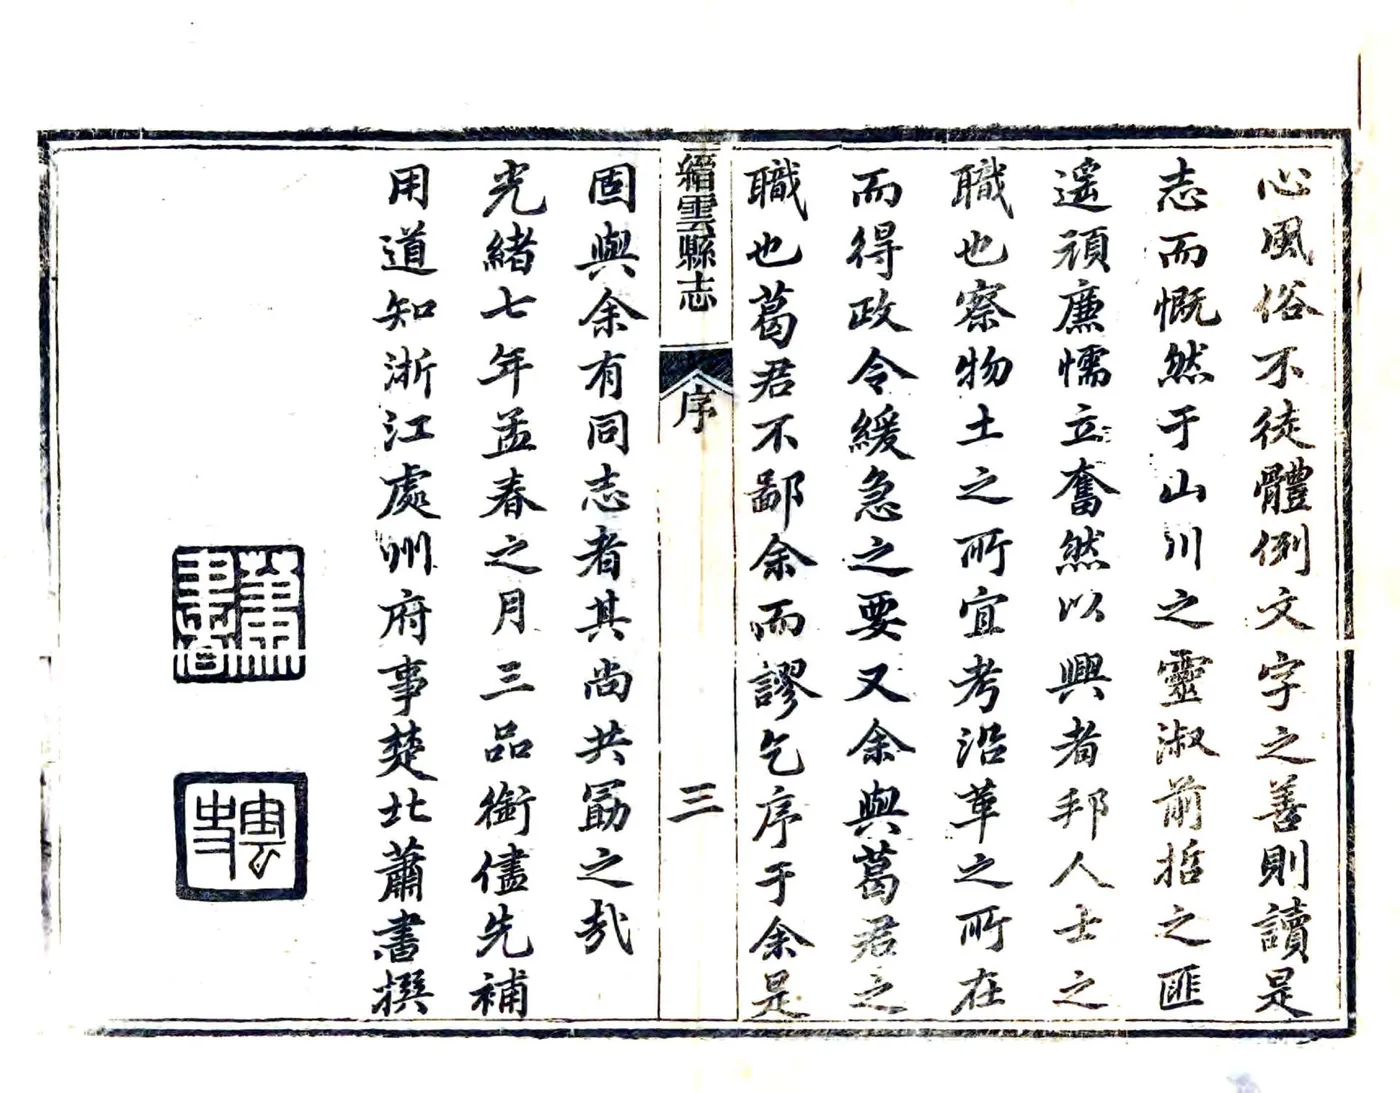 心風俗不徒體例文字之善則讀是
志而慨然于山川之靈淑前哲之匪
遙頑廉懦立奮然以興者邦人士之
職也察物土之所宜考沿革之所在
而得政令緩急之要又余與葛君之
職也葛君不鄙余而謬乞序于余是
縉雲縣志
序
三
固與余有同志者其尚共勗之哉
光緒七年孟春之月三品銜儘先補
用道知浙江處州府事楚北蕭書撰
蕭書